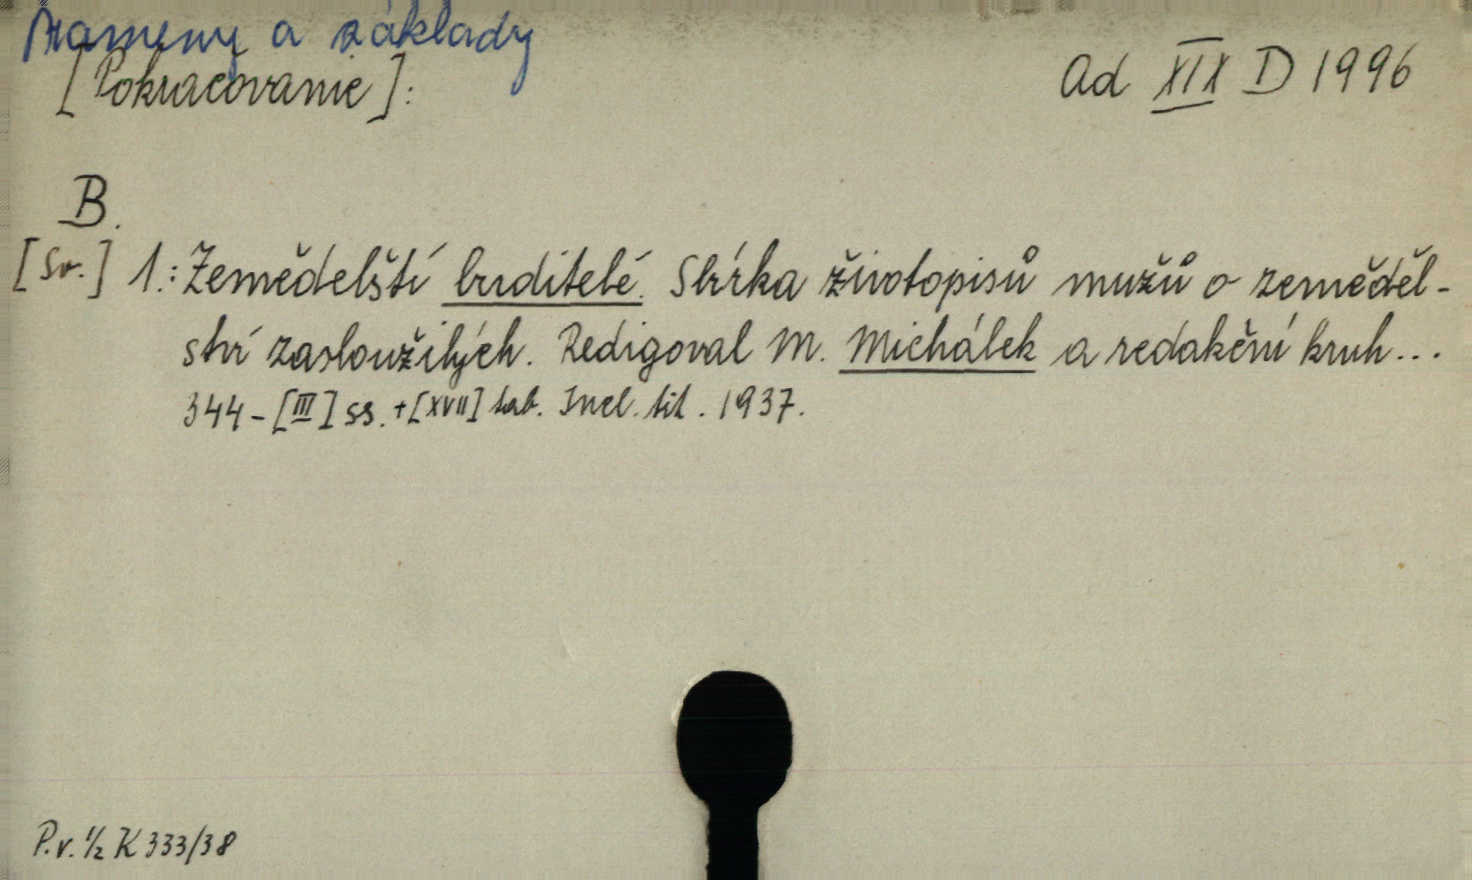 Prameny a základy
[Pokračovanie]:
Ad XIX D 1996
B.
[Sv.] 1.: Zemědelští buditelé. Sbírka životopisů mužů o zeměděl-
ství zasloužilých. Redigoval M. Michálek a redakční kruh...
344-[III] ss. + [XVII] tab. Incl. tit. 1937.
P.v. 1/2 K 333/38